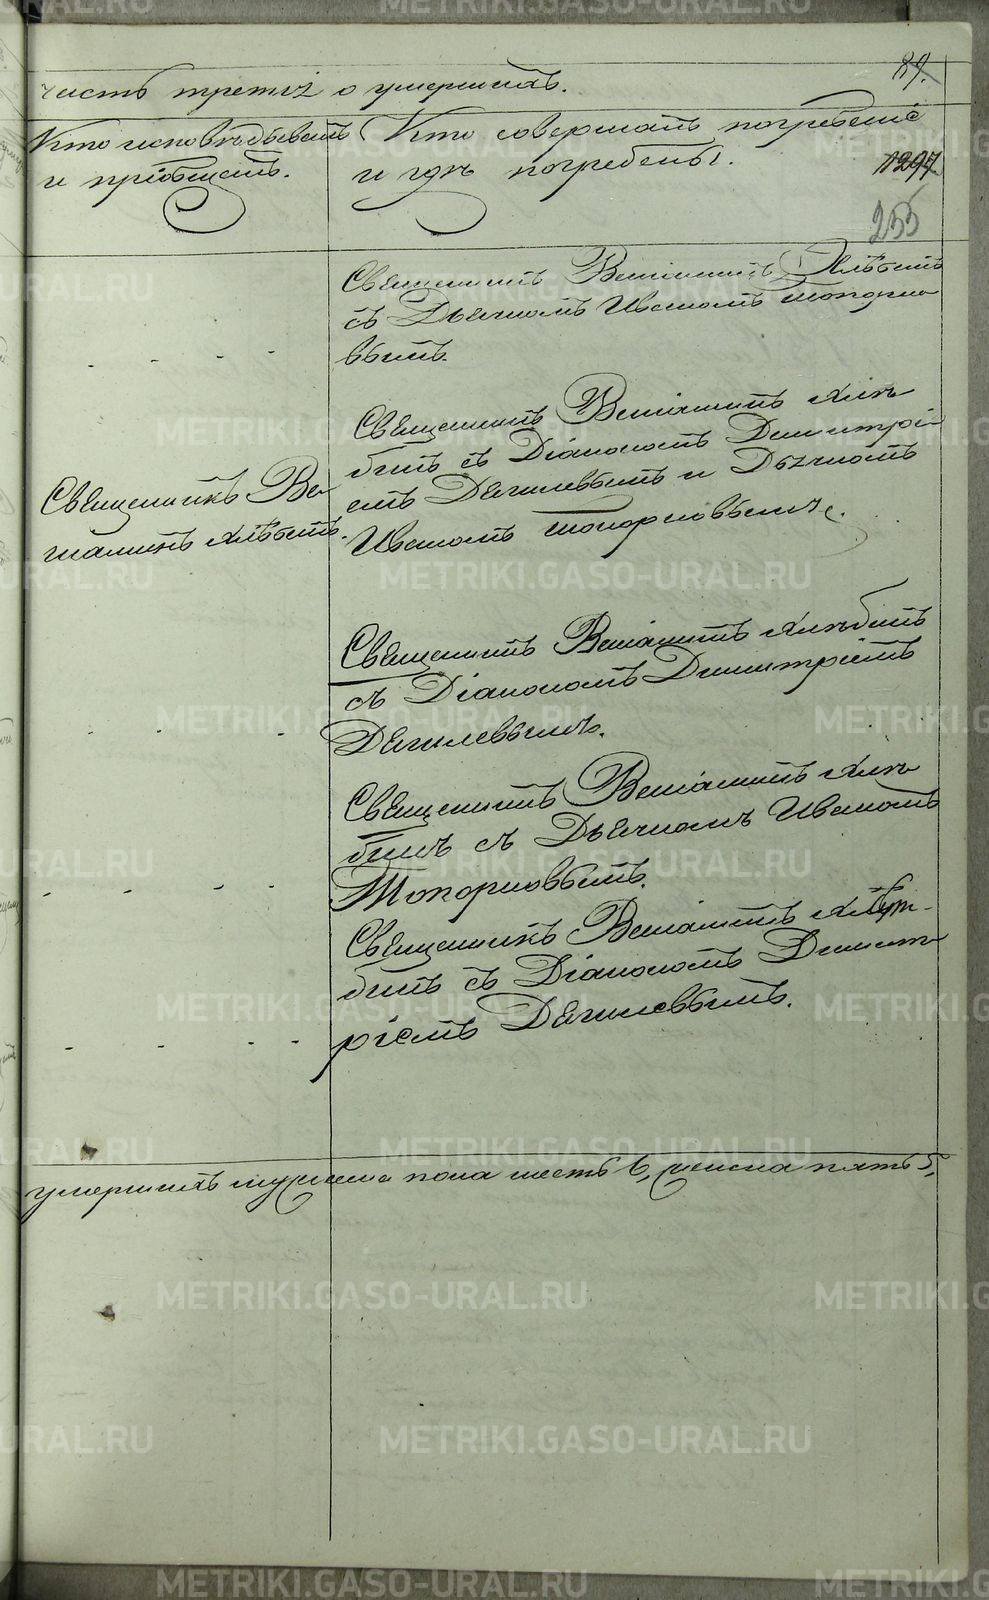 89.
часть третія о умершихъ.
Кто исповѣдывалъ
и пріобщалъ.
Кто совершалъ погребеніе
и гдѣ погребены.
1297.
255
Священникъ Веніаминъ Хлѣбинъ
съ Дьячкомъ Иваномъ Топорко
вымъ.
Священникъ Веніаминъ Хлѣ
бинъ съ Діакономъ Димитрі
емъ Дягилевымъ и Дьячкомъ
Иваномъ Топорковымъ.
Священникъ Ве
ніаминъ Хлѣбинъ.
Священникъ Веніаминъ Хлѣбинъ
съ Діакономъ Димитріемъ
Дягилевымъ.
Священникъ Веніаминъ Хлѣ
бинъ съ Дьячкомъ Иваномъ
Топорковымъ.
Священникъ Веніаминъ
бинъ съ Діакономъ Димит
ріемъ Дягилевымъ.
умершихъ мужеска пола шесть 6, женска пять 5,
METRIKI.GASO-URAL.RU